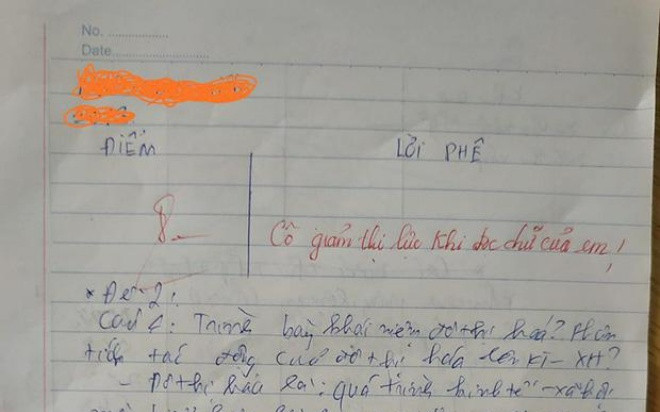 No. ...............
Date..........................
ĐIỂM
LỜI PHÊ
8.-
Cô giảm thị lực khi đọc chữ của em!
* Đề 2:
Câu 1: Trình bày khái niệm đô thị hoá? Phân
tích tác động của đô thị hóa lên KT-XH?
- Đô thị hóa là: quá trình kinh tế - xã hội